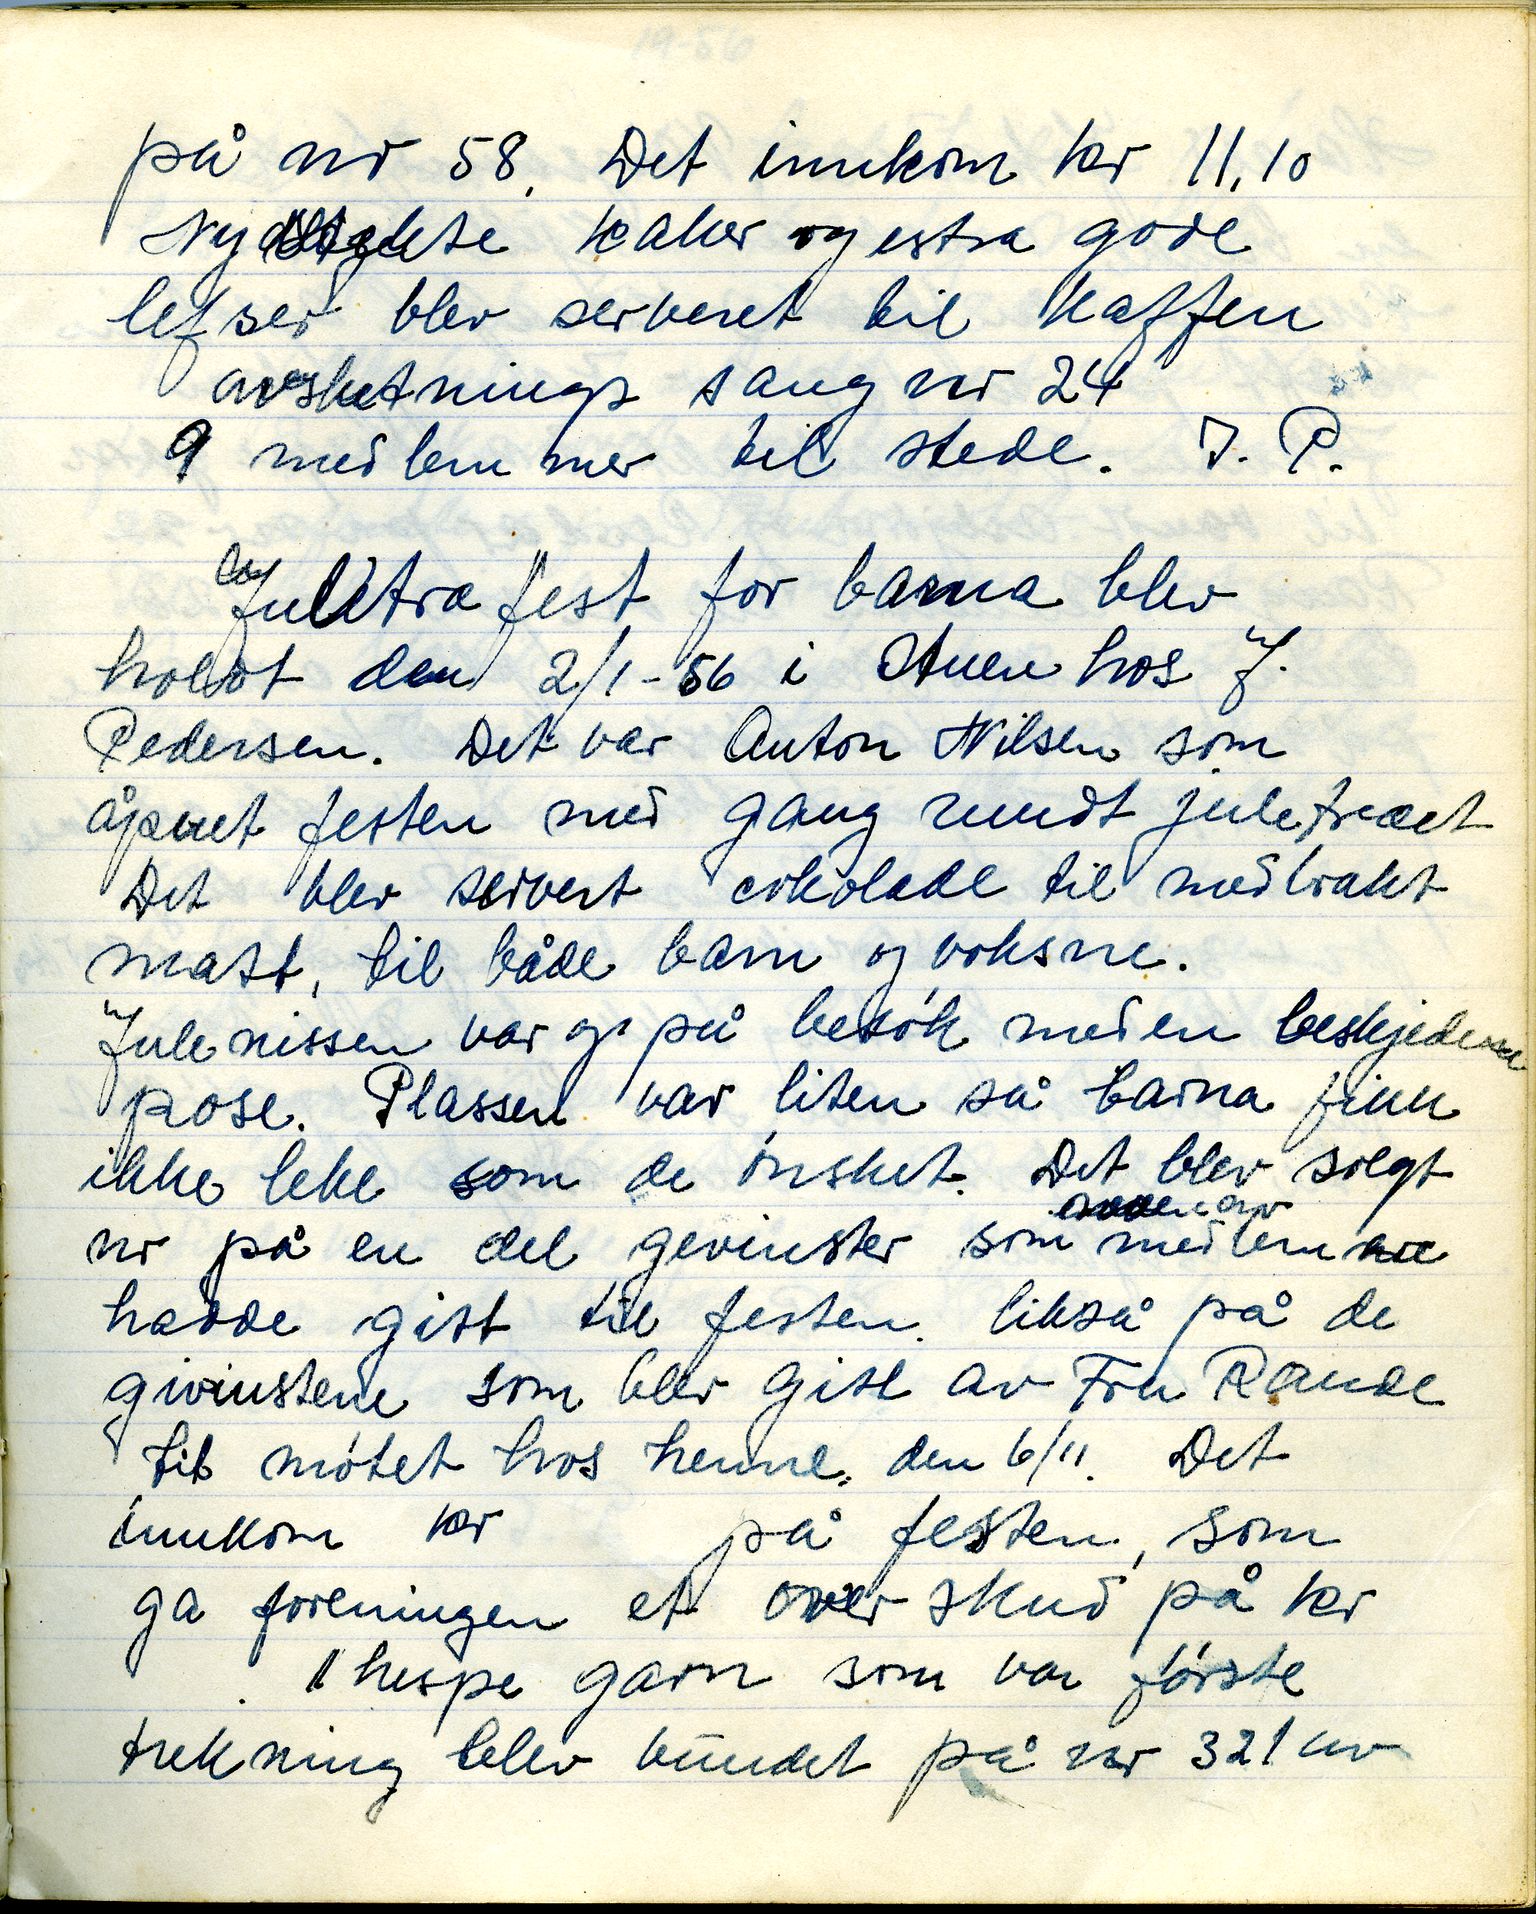 på nr 58. Det innkom kr 11,10
Nydeligste kaker og estra gode
lefser blev serveret til kaffen
avslutnings sang nr 24
9 medlemmer til stede. J. P.
Juletræfest for barna blev
holdt den 2/1-56 i stuen hos J.
Pedersen. Det var Anton Nilsen som
åpnet festen med gang rundt juletræet
Det blev servert cokolade til medbrakt
matt, til både barn og voksne.
Julenissen var og på besök med en beskjeden
pose. Plassen var liten så barna finn
ikke leke som de ønsket. Det blev solgt
nr på en del gevinster som noen av medlemme
hadde gitt til festen. likså på de
givinstene som blev gitt av Fru Rande
til møtet hos henne, den 6/11. Det
innkom kr på festen, som
ga foreningen et overskud på kr
. 1 hespe garn som var første
trekning blev vundet på nr 321 av